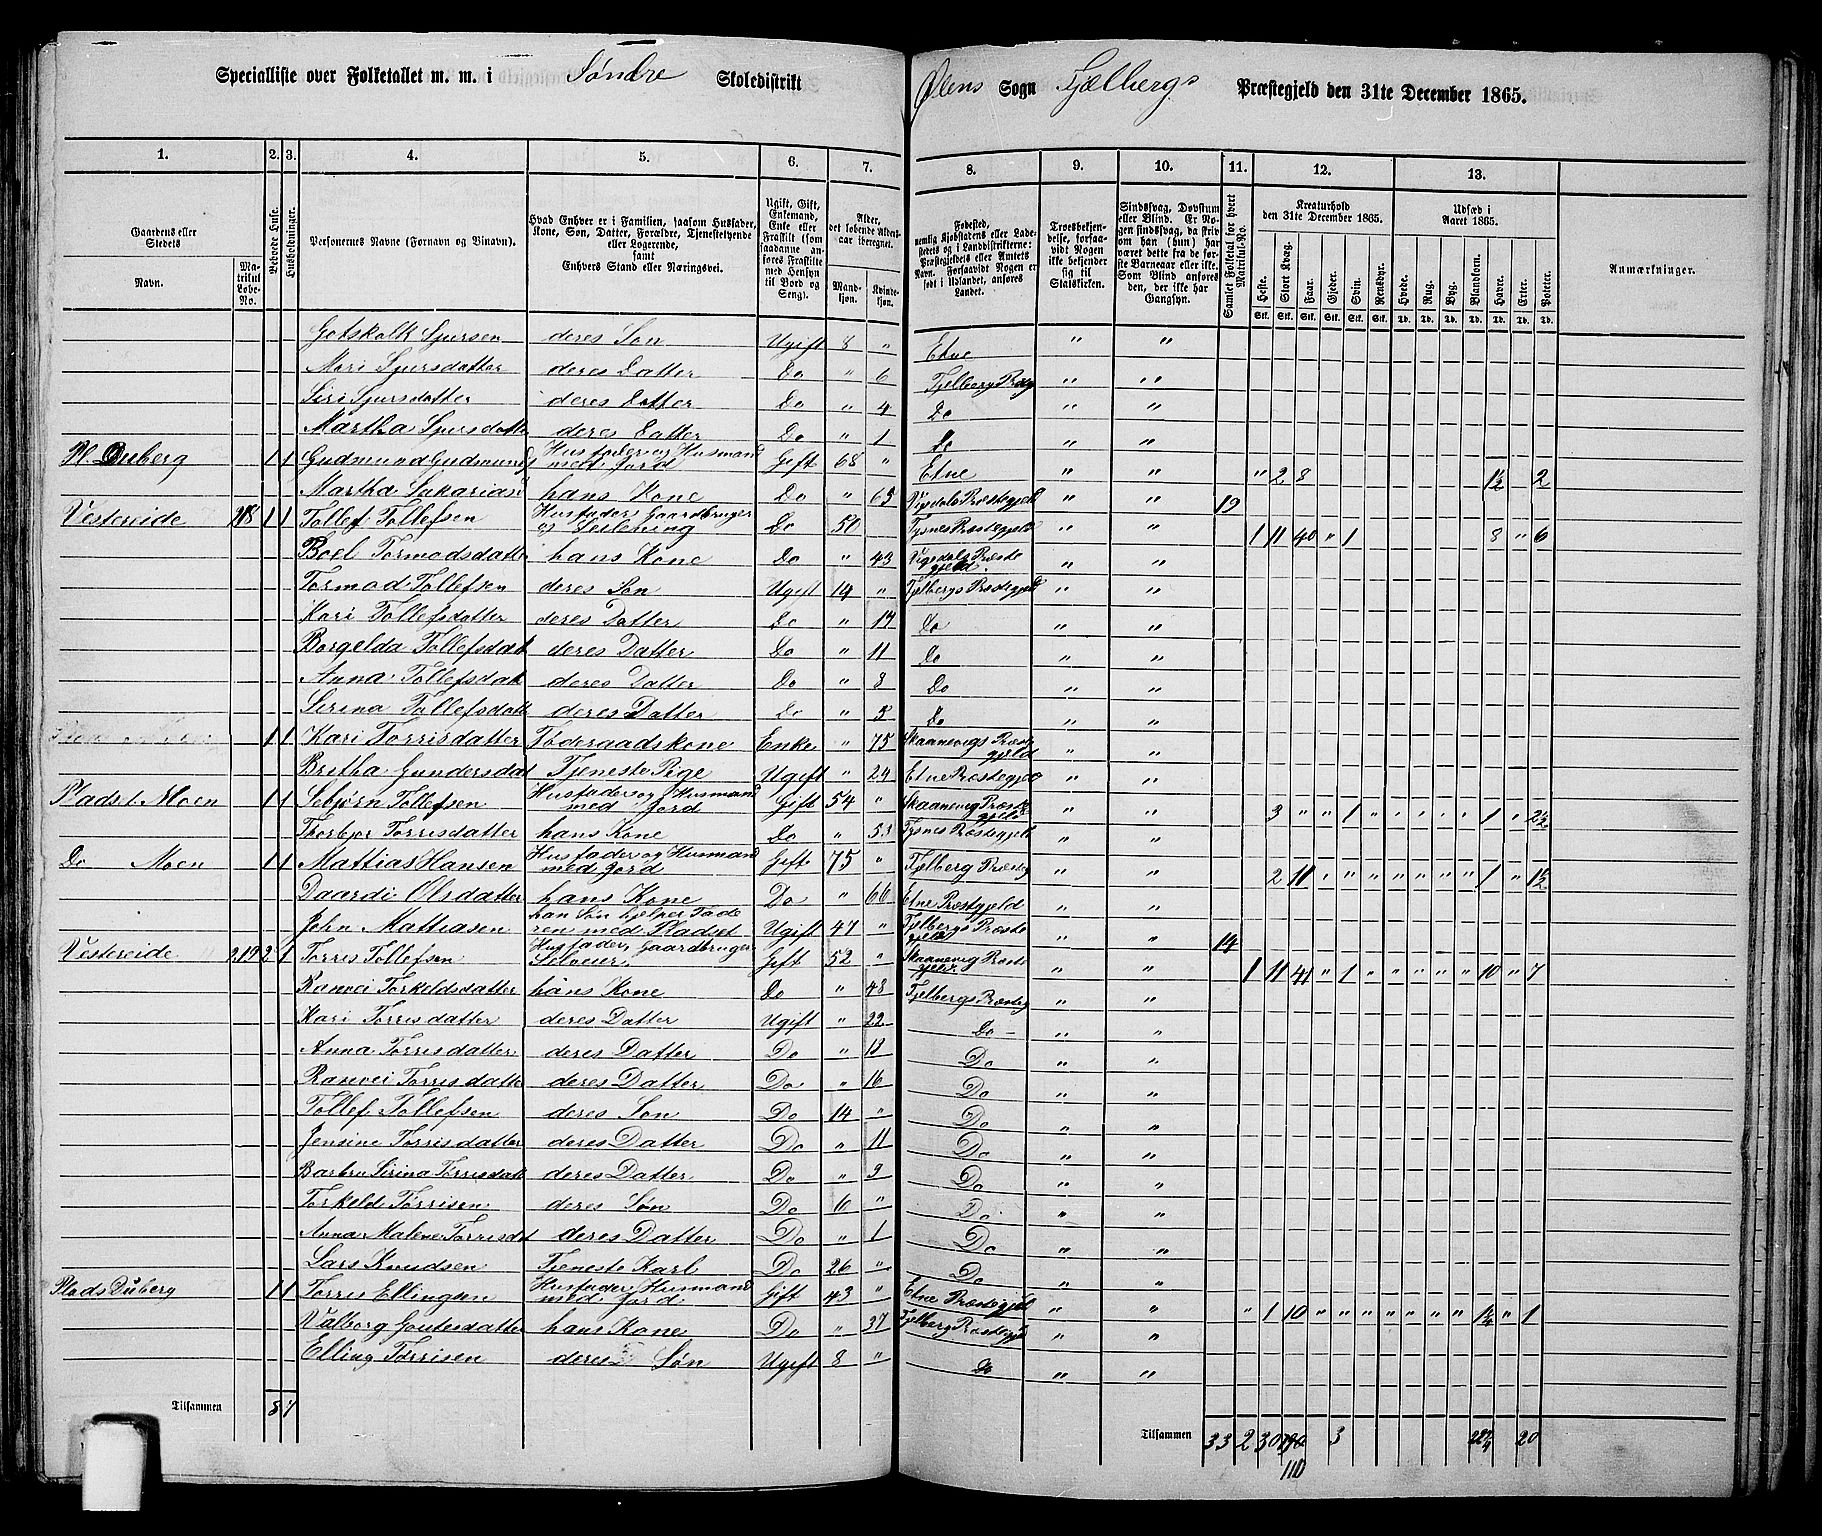 Specialliste over Folketallet m. m. i Søndre Skoledistrikt Ølens Sogn Fjælbergs Præstegjeld den 31te December 1865.
1. 2. 3. 4. 5. 6. 7. 8. 9. 10. 11. 12. 13.
Gaardens eller Stedets
Navn. Matrikul Løbe-No.
Beboede Huse.
Husholdninger.
Personernes Navne (Fornavn og Binavn).
Hvad Enhver er i Familien, saasom Husfader, Kone, Søn, Datter, Forældre, Tjenestetyende eller Logerende, samt Enhvers Stand eller Næringsvei.
Ugift, Gift, Enkemand, Enke eller Fraskilt (som saadanne anføres Fraskilte med Hensyn til Bord og Seng).
Alder, det løbende Aldersaar iberegnet.
Mandkjøn. Kvindekjøn.
Fødested, nemlig Kjøbstadens eller Ladestedets og i Landdistrikterne: Præstegjeldets eller Amtets Navn. Forsaavidt Nogen er født i Udlandet, anføres Landet.
Troesbekjendelse, forsaavidt Nogen ikke bekjender sig til Statskirken.
Sindssvag, Døvstum eller Blind. Er Nogen sindssvag, da skriv om han (hun) har været dette fra de første Barneaar eller ikke. Som Blind anføres den, der ikke har Gangsyn.
Samlet Folketal for hvert Matrikul-No.
Kreaturhold den 31te December 1865.
Heste. Stort Kvæg. Faar. Gjeder. Svin. Rensdyr.
Udsæd i Aaret 1865.
Hvede. Rug. Byg. Blandkorn. Havre. Erter. Poteter.
Anmærkninger.
Gotskalk Sjursen deres Søn Ugift 8 " Etne " "
Mari Sjursdatter deres Datter Do " 6 Fjelberg Præg " "
Siri Sjursdatter deres Datter Do " 4 Do " "
Martha Sjursdatte deres Datter Do " 1 Do " "
Pl. Duberg 1 1 Gudmund Gudmunds Husfader og Husmand med Jord Gift 68 " Etne " " " 2 8 1½ 2
Martha Sakarias hans Kone Do " 65 Vigedals Præstegjeld " " 19
Vestereide 218 1 1 Tollef Tollefsen Husfader Gaardbruger og Leilening Do 50 Tysnes Præstegjeld " " 1 11 40 " 1 8 " 6
Boel Tormodsdatte hans Kone Do " 43 Vigedals Præstegjeld " "
Tormod Tollefsen deres Søn Ugift 14 " Fjelbergs Præstegjeld " "
Kari Tollefsdatter deres Datter Do " 14 Do " "
Borgelda Tollefsdat deres Datter Do " 11 Do " "
Anna Tollefsdat deres Datter Do " 8 Do " "
Sirina Tollefsdatte deres Datter Do " 5 Do " "
1 1 Kari Torrisdatter Føderaadskone Enke " 75 Skaanevigs Præstegjeld " "
Britha Gundersdat Tjeneste Pige Ugift " 24 Etne Præstegjeld " "
Plads Moen 1 1 Sebjørn Tollefsen Husfader og Husmand med Jord Gift 54 " Skaanevig Præstegjeld " " 3 " " 1 " " " " " 1 " 2½
Thorbjor Torrisdatter hans Kone Do " 53 Tysnes Præstegjeld " "
Do Moen 1 1 Mattias Hansen Husfader og Husmand med Jord Gift 75 " Fjelberg Præsteg " " 2 11 " " " " " " " 1 " 1½
Daardi Olsdatter hans Kone Do " 66 Etne Præstgjeld " "
John Mattiasen han Søn hjelper Faderen med Pladset Ugift 47 " Fjelbergs Præstegjeld " " 14
Vestereide 219 2 1 Torris Tollefsen Husfader, Gaardbruger Selveier Gift 52 " Skaanevig Præstegjeld " " 1 11 41 " 1 " " " " " 10 " 7
Ranvei Torkeldsdatter hans Kone Do " 48 Fjelbergs Præsteg " "
Kari Torrisdatter deres Datter Ugift " 22 Do " "
Anna Torrisdatter deres Datter Do " 18 Do " "
Ranvei Torrisdatte deres Datter Do " 16 Do " "
Tollef Tollefsen deres Søn Do 14 " Do " "
Jensine Torrisdatter deres Datter Do " 11 Do " "
Barbru Sirina Torrisdatt deres Datter Do " 9 Do " "
Torkeld Torrisen deres Søn Do 6 " Do " "
Anna Malene Torrisdat deres Datter Do " 1 Do " "
Lars Knudsen Tjeneste Karl Do 26 " Do " "
Plads Duberg 1 1 Torris Ellingsen Husfader Husmand med Jord Gift 43 " Etne Præstegjel " " " 1 10 " " " " " " " 1¼ " 1
Valborg Goutesdatter hans Kone Do " 37 Fjelberg Præstegje " "
Elling Torrisen deres Søn Ugift 8 " Do " "
Tilsammen 8 7 Tilsammen 33 2 30 3 22¾ 20
110